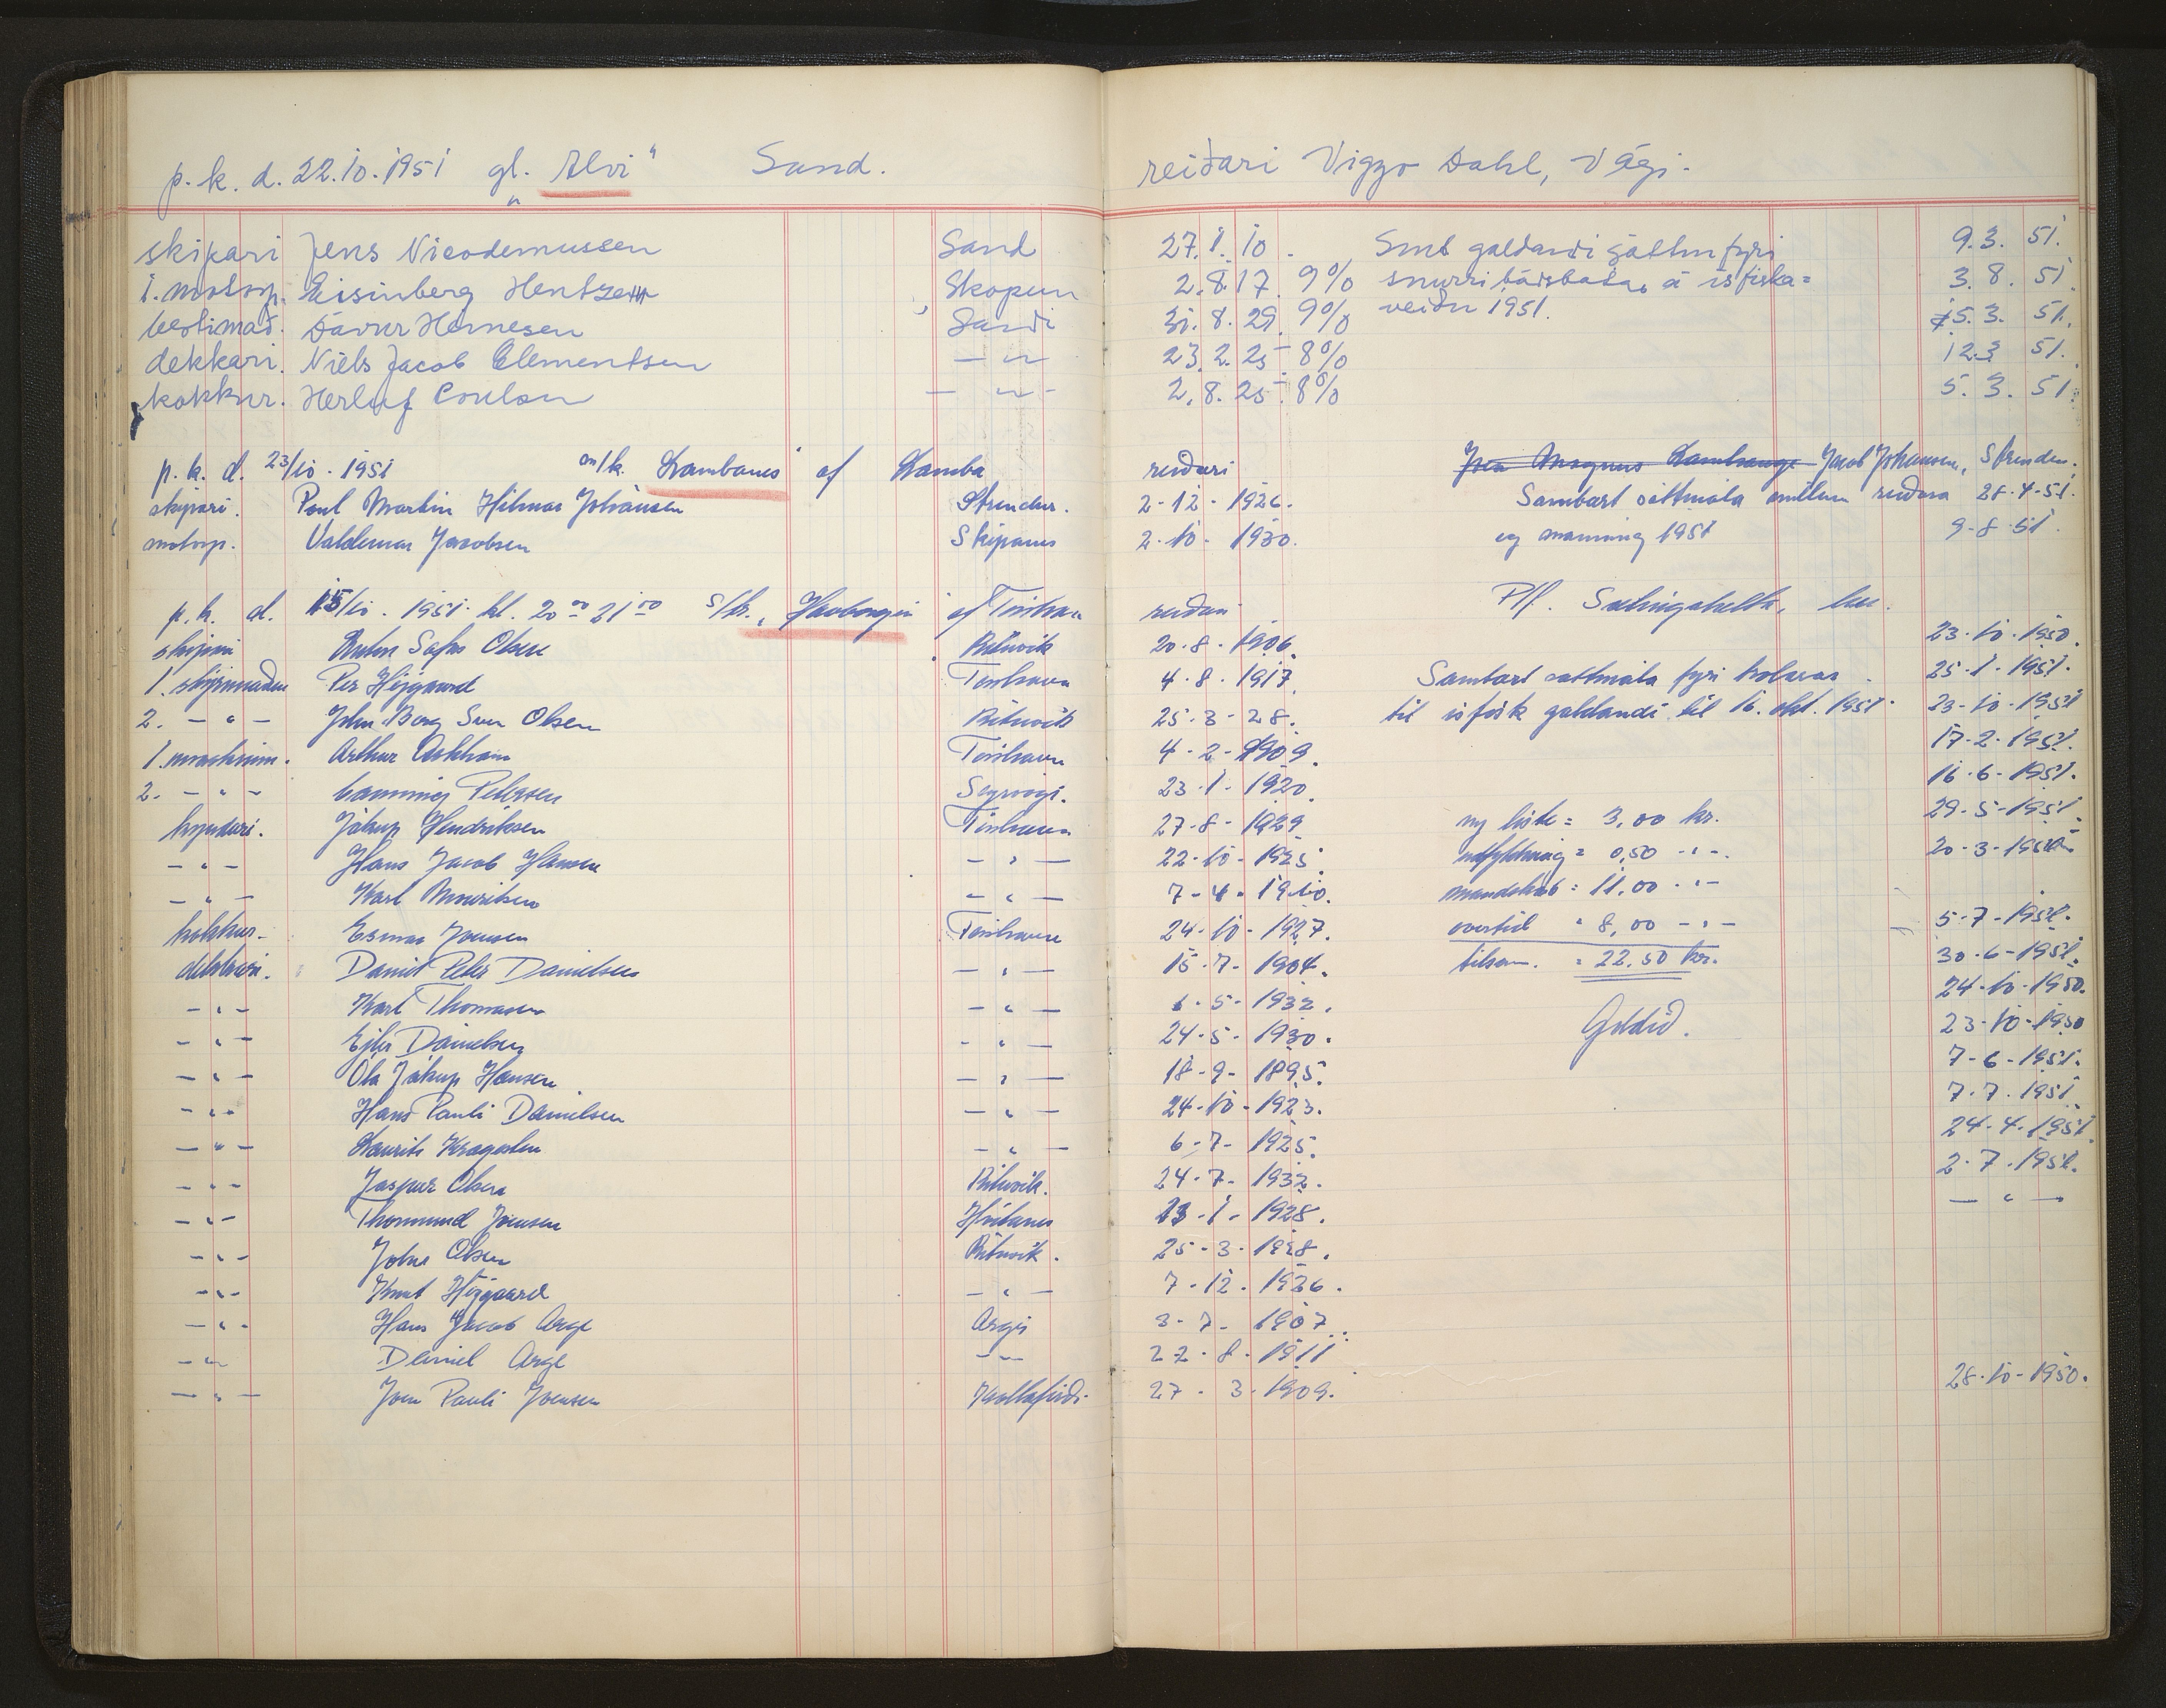 p. k. d. 22.10.1951 gl. „Alvi“ Sand. reiðari Viggo Dahl, Vági.
skipari Jens Nicodemussen Sand 27.1.10. Smb galdandi sáttm fyri 9.3.51.
1. motorp. Eisinberg Hentze 2.8.17. 9% snurribáðsbátar á ísfiska= 3.8.51.
bestimað. Dávur Hernesen Sandi 31.8.29. 9% veiðu 1951. 15.3.51.
dekkari. Niels Jacob Clementsen — " — 23.2.25. 8% 12.3.51.
kokkur. Herluf Poulsen — " — 2.8.25. 8% 5.3.51.
p. k. d. 23/10 - 1951 m/k. „Lambanes“ af Lamba reiðari Jacob Johansen, Strendur.
skipari. Poul Martin Hilmar Johansen Strendur. 2-12-1926. Sambært sáttmála millum reiðara 28-4-51.
motorp. Valdemar Jacobsen Skipanes 2-10-1930. og manning 1951 9-8-51.
p. k. d. 15/10 - 1951 - kl. 20 00 - 21 00 S/k. „Havborgin“ af Tórshavn reiðari P/f.
skipari Anton Sofus Olsen Rituvík 20-8-1906. 23-10-1950.
1. stýrimaður Per Højgaard Tórshavn 4-8-1917. Sambært sáttmála fyri trolarar 25-1-1951.
2. — " — John Berg Sven Olsen Rituvík 25-3-28. til ísfisk galdandi til 16. okt. 1951. 23-10-1951
1. maskinm. Arthur Askham Tórshavn 4-2-1909. 17-2-1951.
2. — " — Petersen Sørvági. 23-1-1920. 16-6-1951.
kyndari. Jákup Hendriksen Tórshavn 27-8-1929. ny liste = 3,00 kr. 29-5-1951.
— " — Hans Jacob Hansen — " — 22-10-1925. udfyldning = 0,50 - " -. 20-3-1951.
— " — Karl Mouritsen — " — 7-4-1910. mandskab = 11,00 - " -
kokkur. Esmar Joensen Tórshavn 24-10-1927. overtid = 8,00 - " - 5-7-1951.
dekkari. Daniel Peter Danielsen — " — 15-7-1904. tilsam. = 22.50 kr. 30-6-1951.
— " — Karl Thomasen — " — 6-5-1932. 24-10-1950.
— " — Ejler Danielsen — " — 24-5-1930. Goldið. 23-10-1950
— " — Óla Jákup Hansen — " — 18-9-1895. 7-6-1951.
— " — Hans Pauli Danielsen — " — 24-10-1923. 7.7.1951
— " — Laurits Kragesteen — " — 6-7-1925. 24-4-1951.
— " — Jaspur Olsen Rituvík. 24-7-1932. 2-7-1951.
— " — Thormund Joensen 13-1-1928. — " —
— " — Olsen Rituvík. 25-3-1928.
— " — Knut Højgaard — " — 7-12-1926.
— " — Hans Jacob Arge Argir 3-7-1907.
— " — Daniel Arge — " — 22-8-1911
— " — Joen Pauli Joensen Kollafirði. 27-3-1909. 28-10-1950.